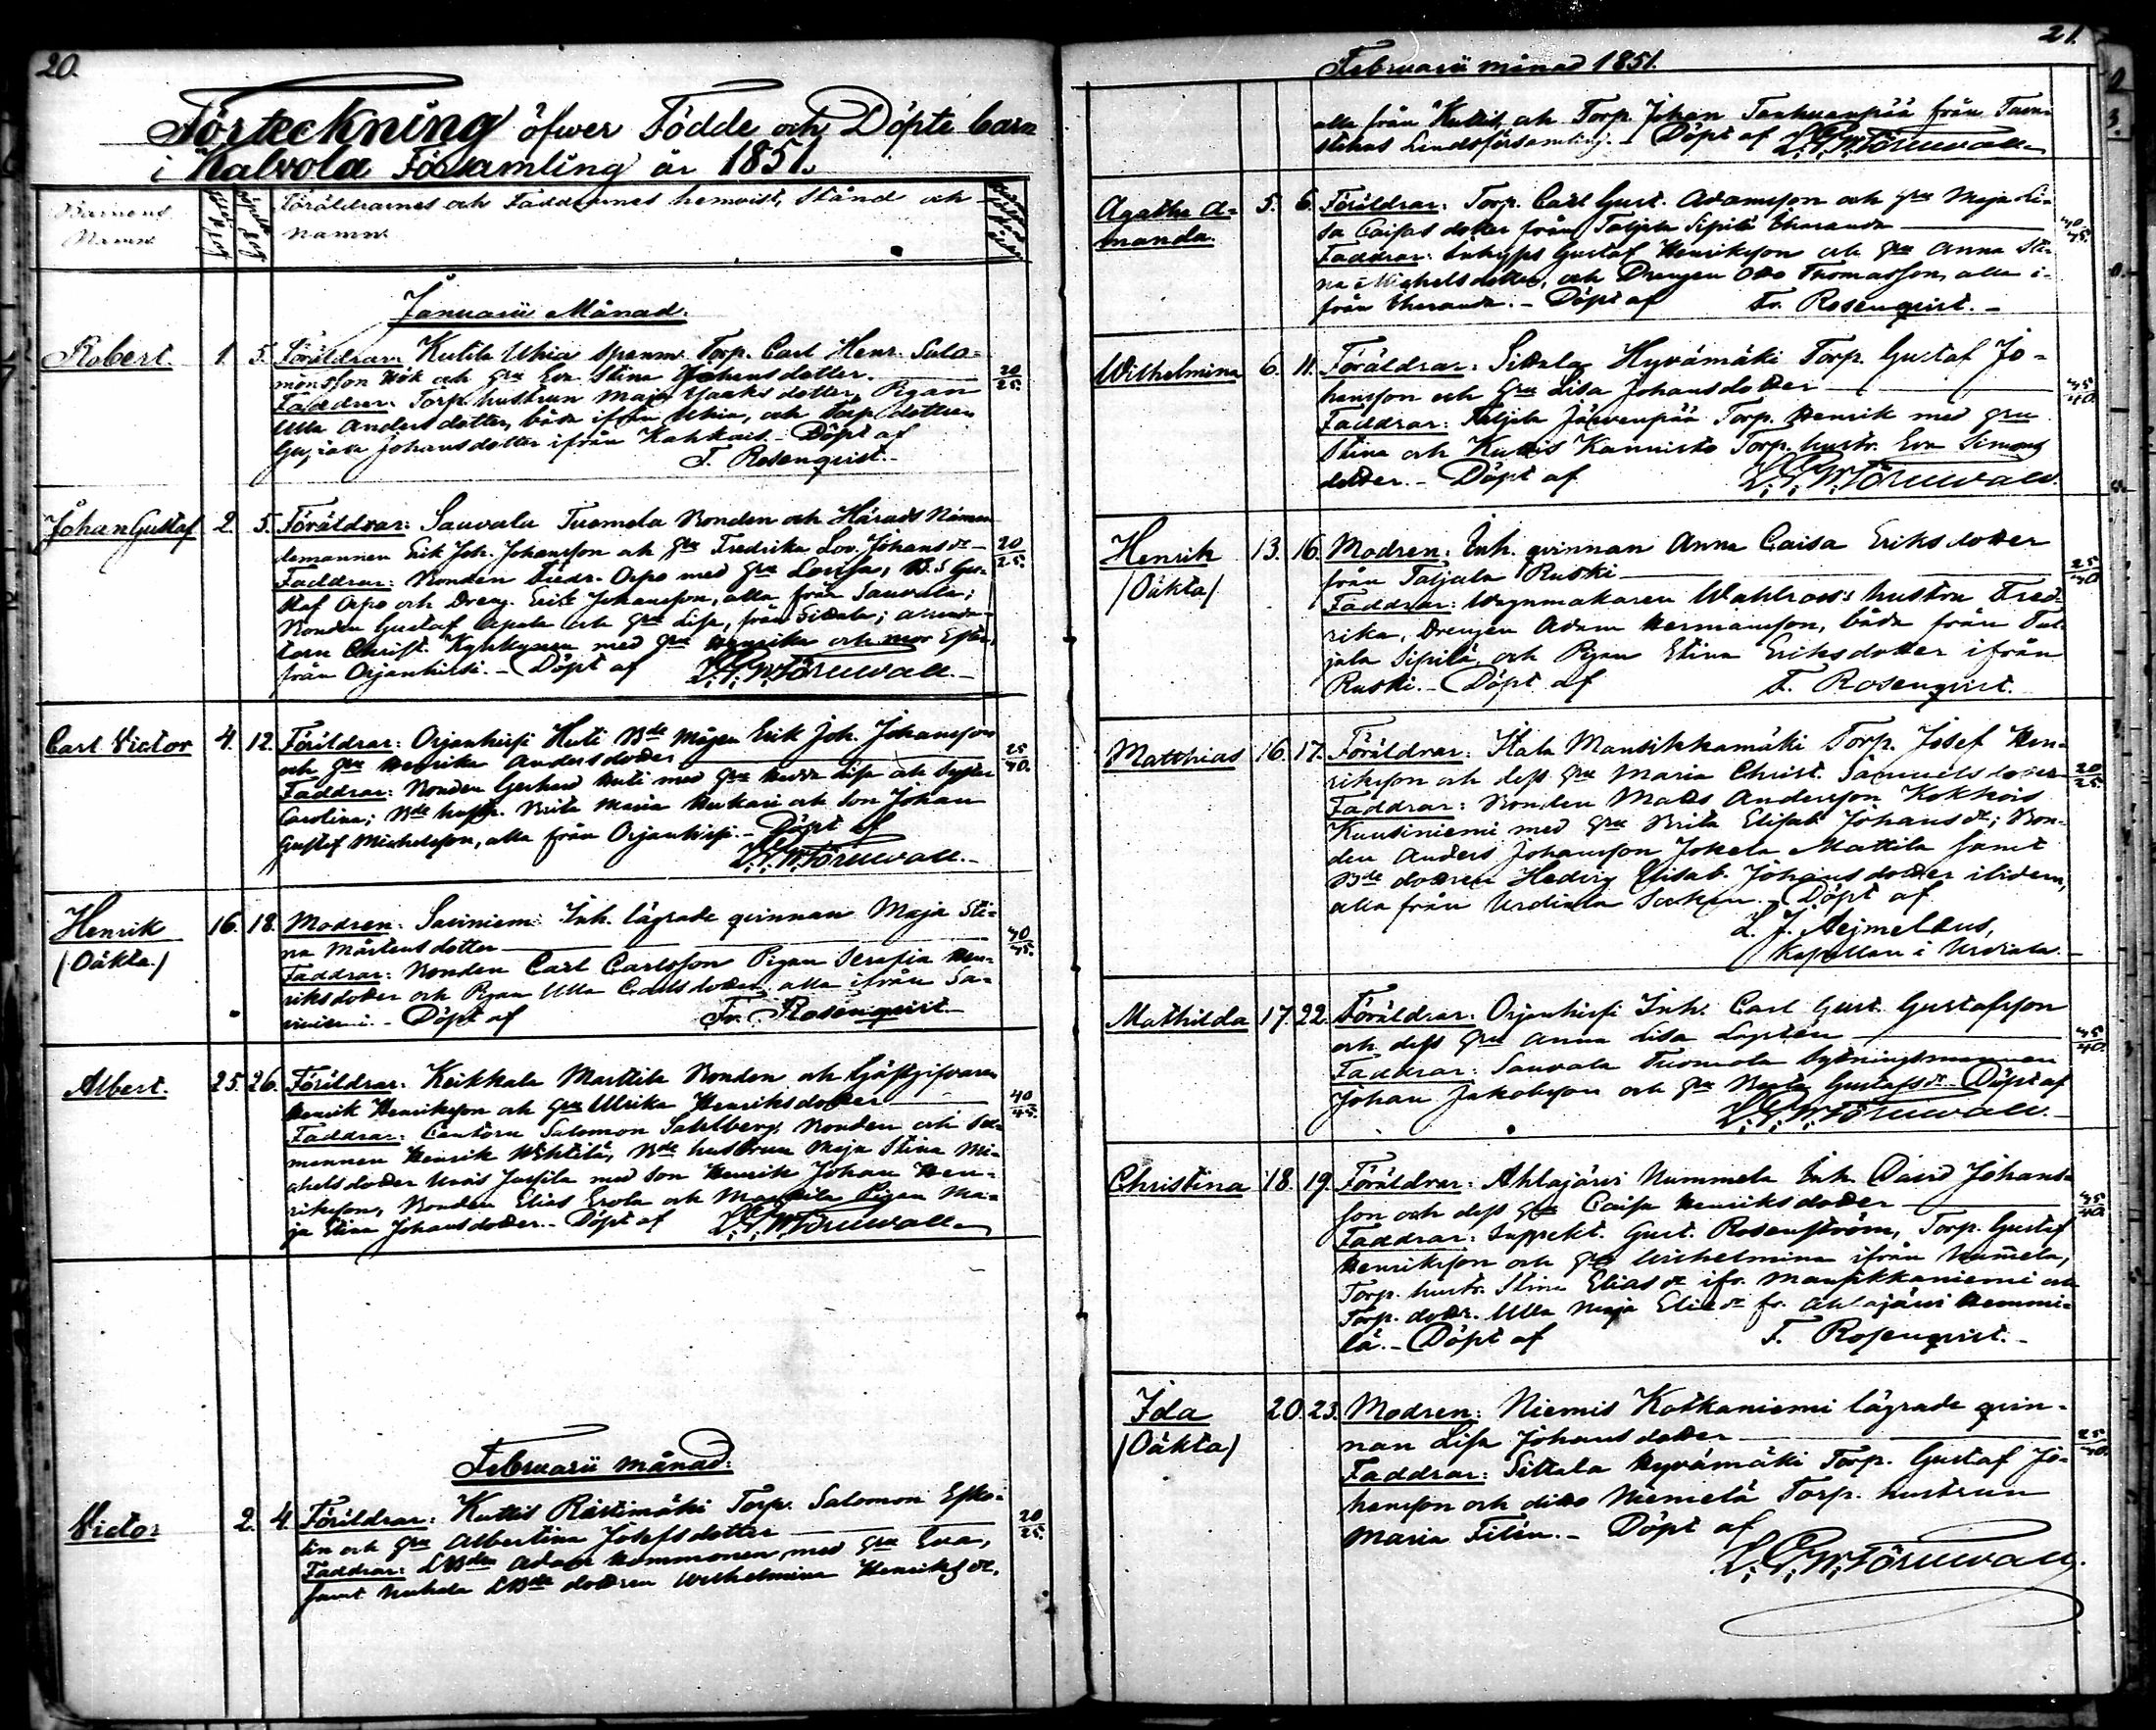 20.
Förteckning öfwer Födde och Döpte barn
i Kalvola Församling år 1851.
Barnens Namn
Föräldrarnes och Faddrarnes hemvist, Stånd och
Namn.
Januarii Månad.
Robert. 1. 5. Föräldrar: Kutila Uhia Torp. Carl Henr. Salo-
monsson Hök och Eva Stina Johansdotter. 20/25.
Faddrar: Torp. hustrun Maja Jaaksdotter, Pigan
Ulla Andersdotter, båda ifrån Uhia, och Torp. dottren
Johansdotter ifrån Kahkais. Döpt af
F. Rosenqvist.
Johan Gustaf 2. 5. Föräldrar: Sauvala Tuomola Bonden och Härads Nämn-
demannen Erik Joh. Johansson och Fredrika Lov. Johans dr 20/25.
Faddrar: Bonden Fredr. Orpo med Gra Lovisa, Gu-
staf Orpo och Dreng. Erik Johansson, alla från Sauvala;
Bonden Gustaf Apala och Gra Lisa, från Sittala;
Christ. med Gra Henrika och mor Ester,
från Orjanhirsi. - Döpt af L. G. W. Törnwall.
Carl Victor 4. 12. Föräldrar: Orjanhirsi Huti Bde Mågen Erik Joh. Johansson
och Gra Henrika Andersdotter 25/40.
Faddrar: Bonden Gerhard Huti med Gra Hedda Lisa och Syster
Carolina; Bde hustr. Brita Maria och Son Johan
Gustaf Michelsson, alla från Orjanhirsi. - Döpt af
L. G. W. Törnwall.
Henrik 16. 18. Modren: Sariniemi Inh. lägrade qvinnan Maja Sti-
(Oäkta.) na Mårtensdotter 40/45.
Faddrar: Bonden Carl Carlsson Pigan Serafia Hen-
riksdotter och Pigan Ulla Carlsdotter, alla ifrån Sa-
riniemi. - Döpt af Fr. Rosenqvist.
Albert. 25. 26. Föräldrar: Keikkala Marttila Bonden och Gästgifvaren
Henrik Henriksson och Gra Ulrika Henriksdotter 40/45.
Faddrar: Cantorn Salomon Sahlberg, Bonden och Sex-
mannen Henrik Wehtilä, Bde hustrun Maja Stina Mi-
chelsdotter Jussila med Son Henrik Johan Hen-
riksson, Bonden Elias Erola och Marttila Pigan Ma-
ja Stina Johansdotter. - Döpt af L. G. W. Törnwall.
Februarii månad.
Victor 2. 4. Föräldrar: Kuttis Ristimäki Torp. Salomon Esko-
lin och Gra Albertina Josefsdotter 20/25.
Faddrar: LBden Adam Hommonen med Gra Eva,
samt LBde dottren Wilhelmina Henriks dr,
21.
Februarii månad 1851.
alla från Kuttis, och Torp. Johan Tanhuanpää från Tawa-
stehus Landsförsamling. - Döpt af L. G. W. Törnwall.
Agatha A- 5. 6. Föräldrar: Torp. Carl Gust. Adamsson och Gra Maja Li-
manda. sa Caisasdotter från Taljala Sipilä 40/45.
Faddrar: Inhyses Gustaf Henriksson och Gra Anna Sti-
na Michelsdotter, och Drengen Otto Thomasson, alla i-
från - Döpt af Fr. Rosenqvist.
Wilhelmina 6. 11. Föräldrar: Sittala Hyvämäki Torp. Gustaf Jo-
hansson och Gra Lisa Johansdotter 35/40.
Faddrar: Taljala Järvenpää Torp. Henrik med Gra
Stina och Kuttis Kannisto Torp. hustr. Eva Simons
dotter. - Döpt af L. G. W. Törnwall.
Henrik 13. 16. Modren: Inh. qvinnan Anna Caisa Eriksdotter
(Oäkta) från Taljala Ruski 25/40
Faddrar: Wagnmakaren Wahlroos's hustru Fred-
rika, Drengen Adam Hermansson, båda från Tal-
jala Sipilä, och Pigan Stina Eriksdotter ifrån
Ruski. - Döpt af F. Rosenqvist.
Matthias 16. 17. Föräldrar: Itala Mansikkamäki Torp. Josef Hen-
riksson och dess Gra Maria Christ. Samuelsdotter 20/25.
Faddrar: Bonden Matts Andersson Kokkois
Kuusiniemi med Gra Brita Elisab. Johans dr; Bon-
den Anders Johansson Jokela Mattila samt
Bde dottren Hedvig Elisab. Johansdotter ibidem,
alla från Urdiala Socken. - Döpt af
L. J. Aejmelæus,
Kapellan i Urdiala.
Mathilda 17. 22. Föräldrar: Orjanhirsi Inh. Carl Gust. Gustafsson
och dess Gra Anna Lisa Löfstén 35/40.
Faddrar: Sauvala Tuomola Sytningsmannen
Johan Jakobsson och Gra Beata Gustafs dr. Döpt af
L. G. W. Törnwall.
Christina 18. 19. Föräldrar: Ahlajärvi Nummela Inh. David Johans-
son och dess Gra Caisa Henriksdotter 35/40.
Faddrar: Inspekt. Gust. Rosenström, Torp. Gustaf
Henriksson och Gra Wilhelmina ifrån Num̄ela,
Torp. hustr. Stina Elias dr ifr. Mansikkaniemi och
Torp. dottr. Ulla Maja Elias dr fr. Ahlajärvi Hemmi-
lä. - Döpt af F. Rosenqvist. -
Ida 20. 23. Modren: Niemis Kotkaniemi lägrade qvin-
(Oäkta) nan Lisa Johansdotter 25/40.
Faddrar: Sittala Hyvämäki Torp. Gustaf Jo-
hansson och ditto Niemelä Torp. hustrun
Maria Filén. - Döpt af
L. G. W. Törnwall.